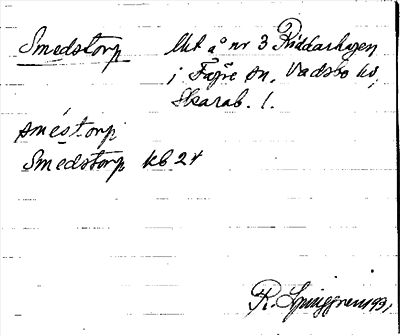 Smedstorp
Utt å nr 3 Riddarhagen
i Fägre sn, Vadsbo hd,
Skarab. l.
sméstorp
Smedstorp kb 24
R. Ljunggren 1931